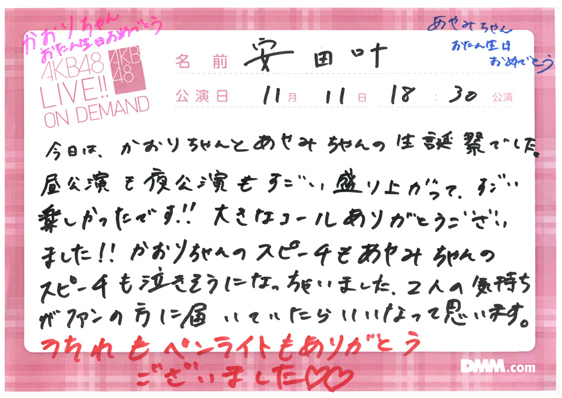 かおりちゃん
おたん生日おめでとう
あやみちゃん
おたん生日
おめでとう
AKB48
LIVE!!
ON DEMAND
AKB
48
名前 安田叶
公演日 11月 11日 18:30公演
今日は、かおりちゃんとあやみちゃんの生誕祭でした。
昼公演も夜公演もすごい盛り上がって、すごい
楽しかったです!! 大きなコールありがとうござい
ました!! かおりちゃんのスピーチもあやみちゃんの
スピーチも泣きそうになっちゃいました、2人の気持ち
がファンの方に届いていたらいいなって思います。
うちわもペンライトもありがとう
ございました♡♡
DMM.com